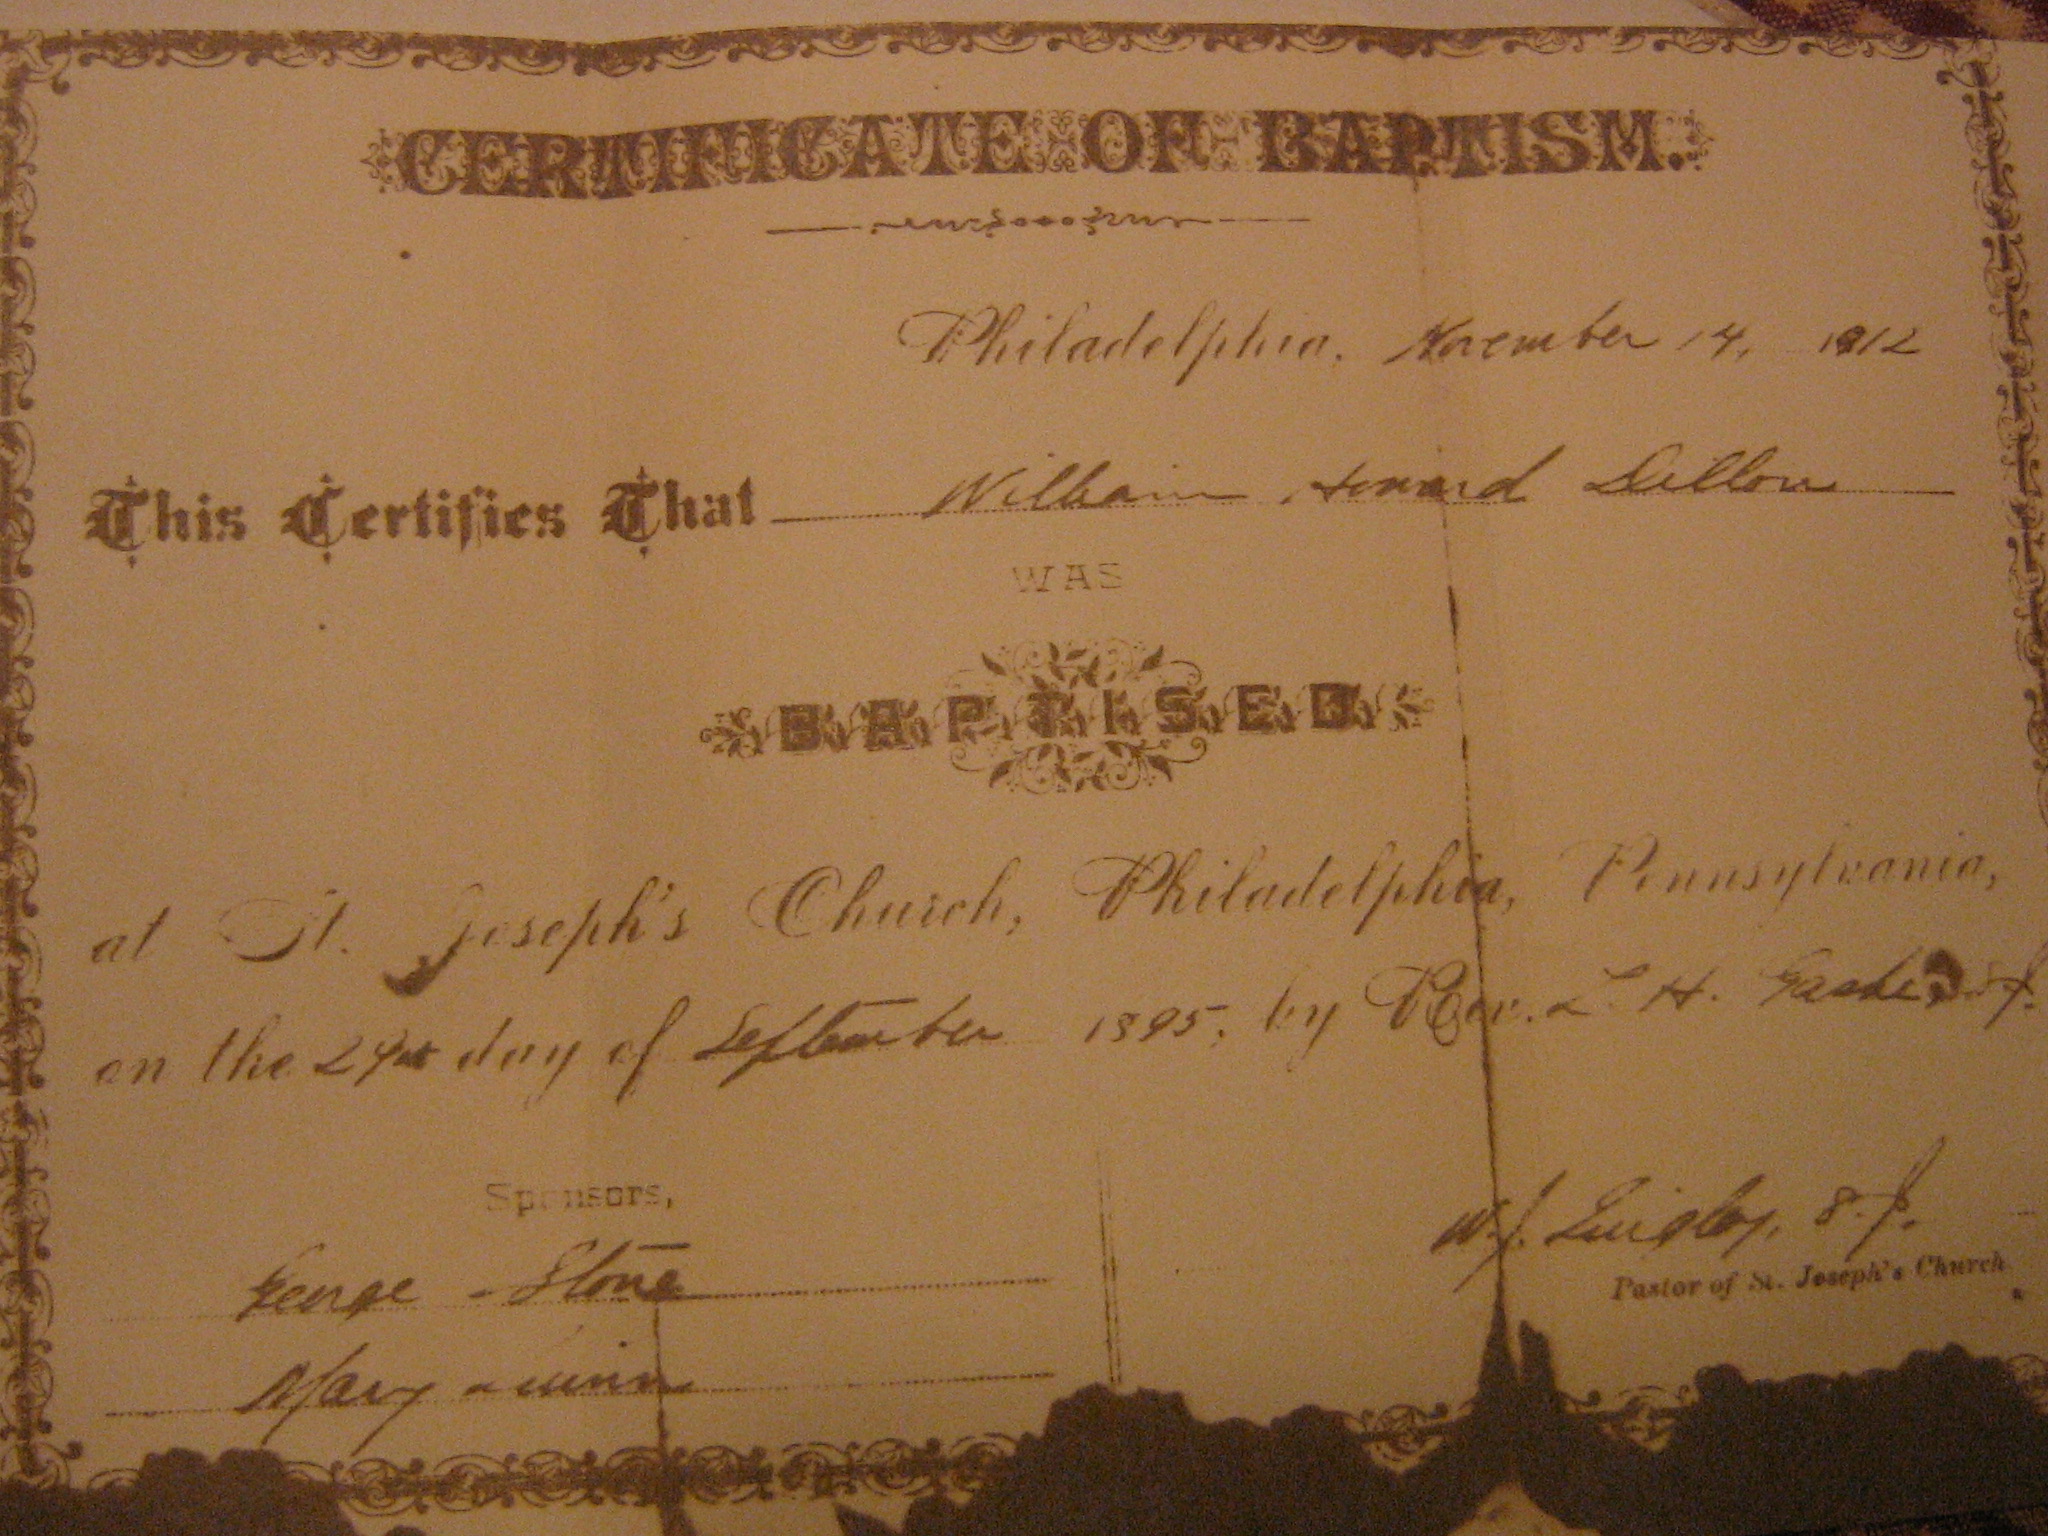 CERTIFICATE OF BAPTISM.
Philadelphia, November 14, 1912
This Certifies That William Howard Dillon
WAS
BAPTISED
at St. Joseph's Church, Philadelphia, Pennsylvania,
on the 29th day of September 1895, by Rev. L. H. S.J.
Sponsors,
George Stone
Mary Quinn
W. J. S.J.
Pastor of St. Joseph's Church